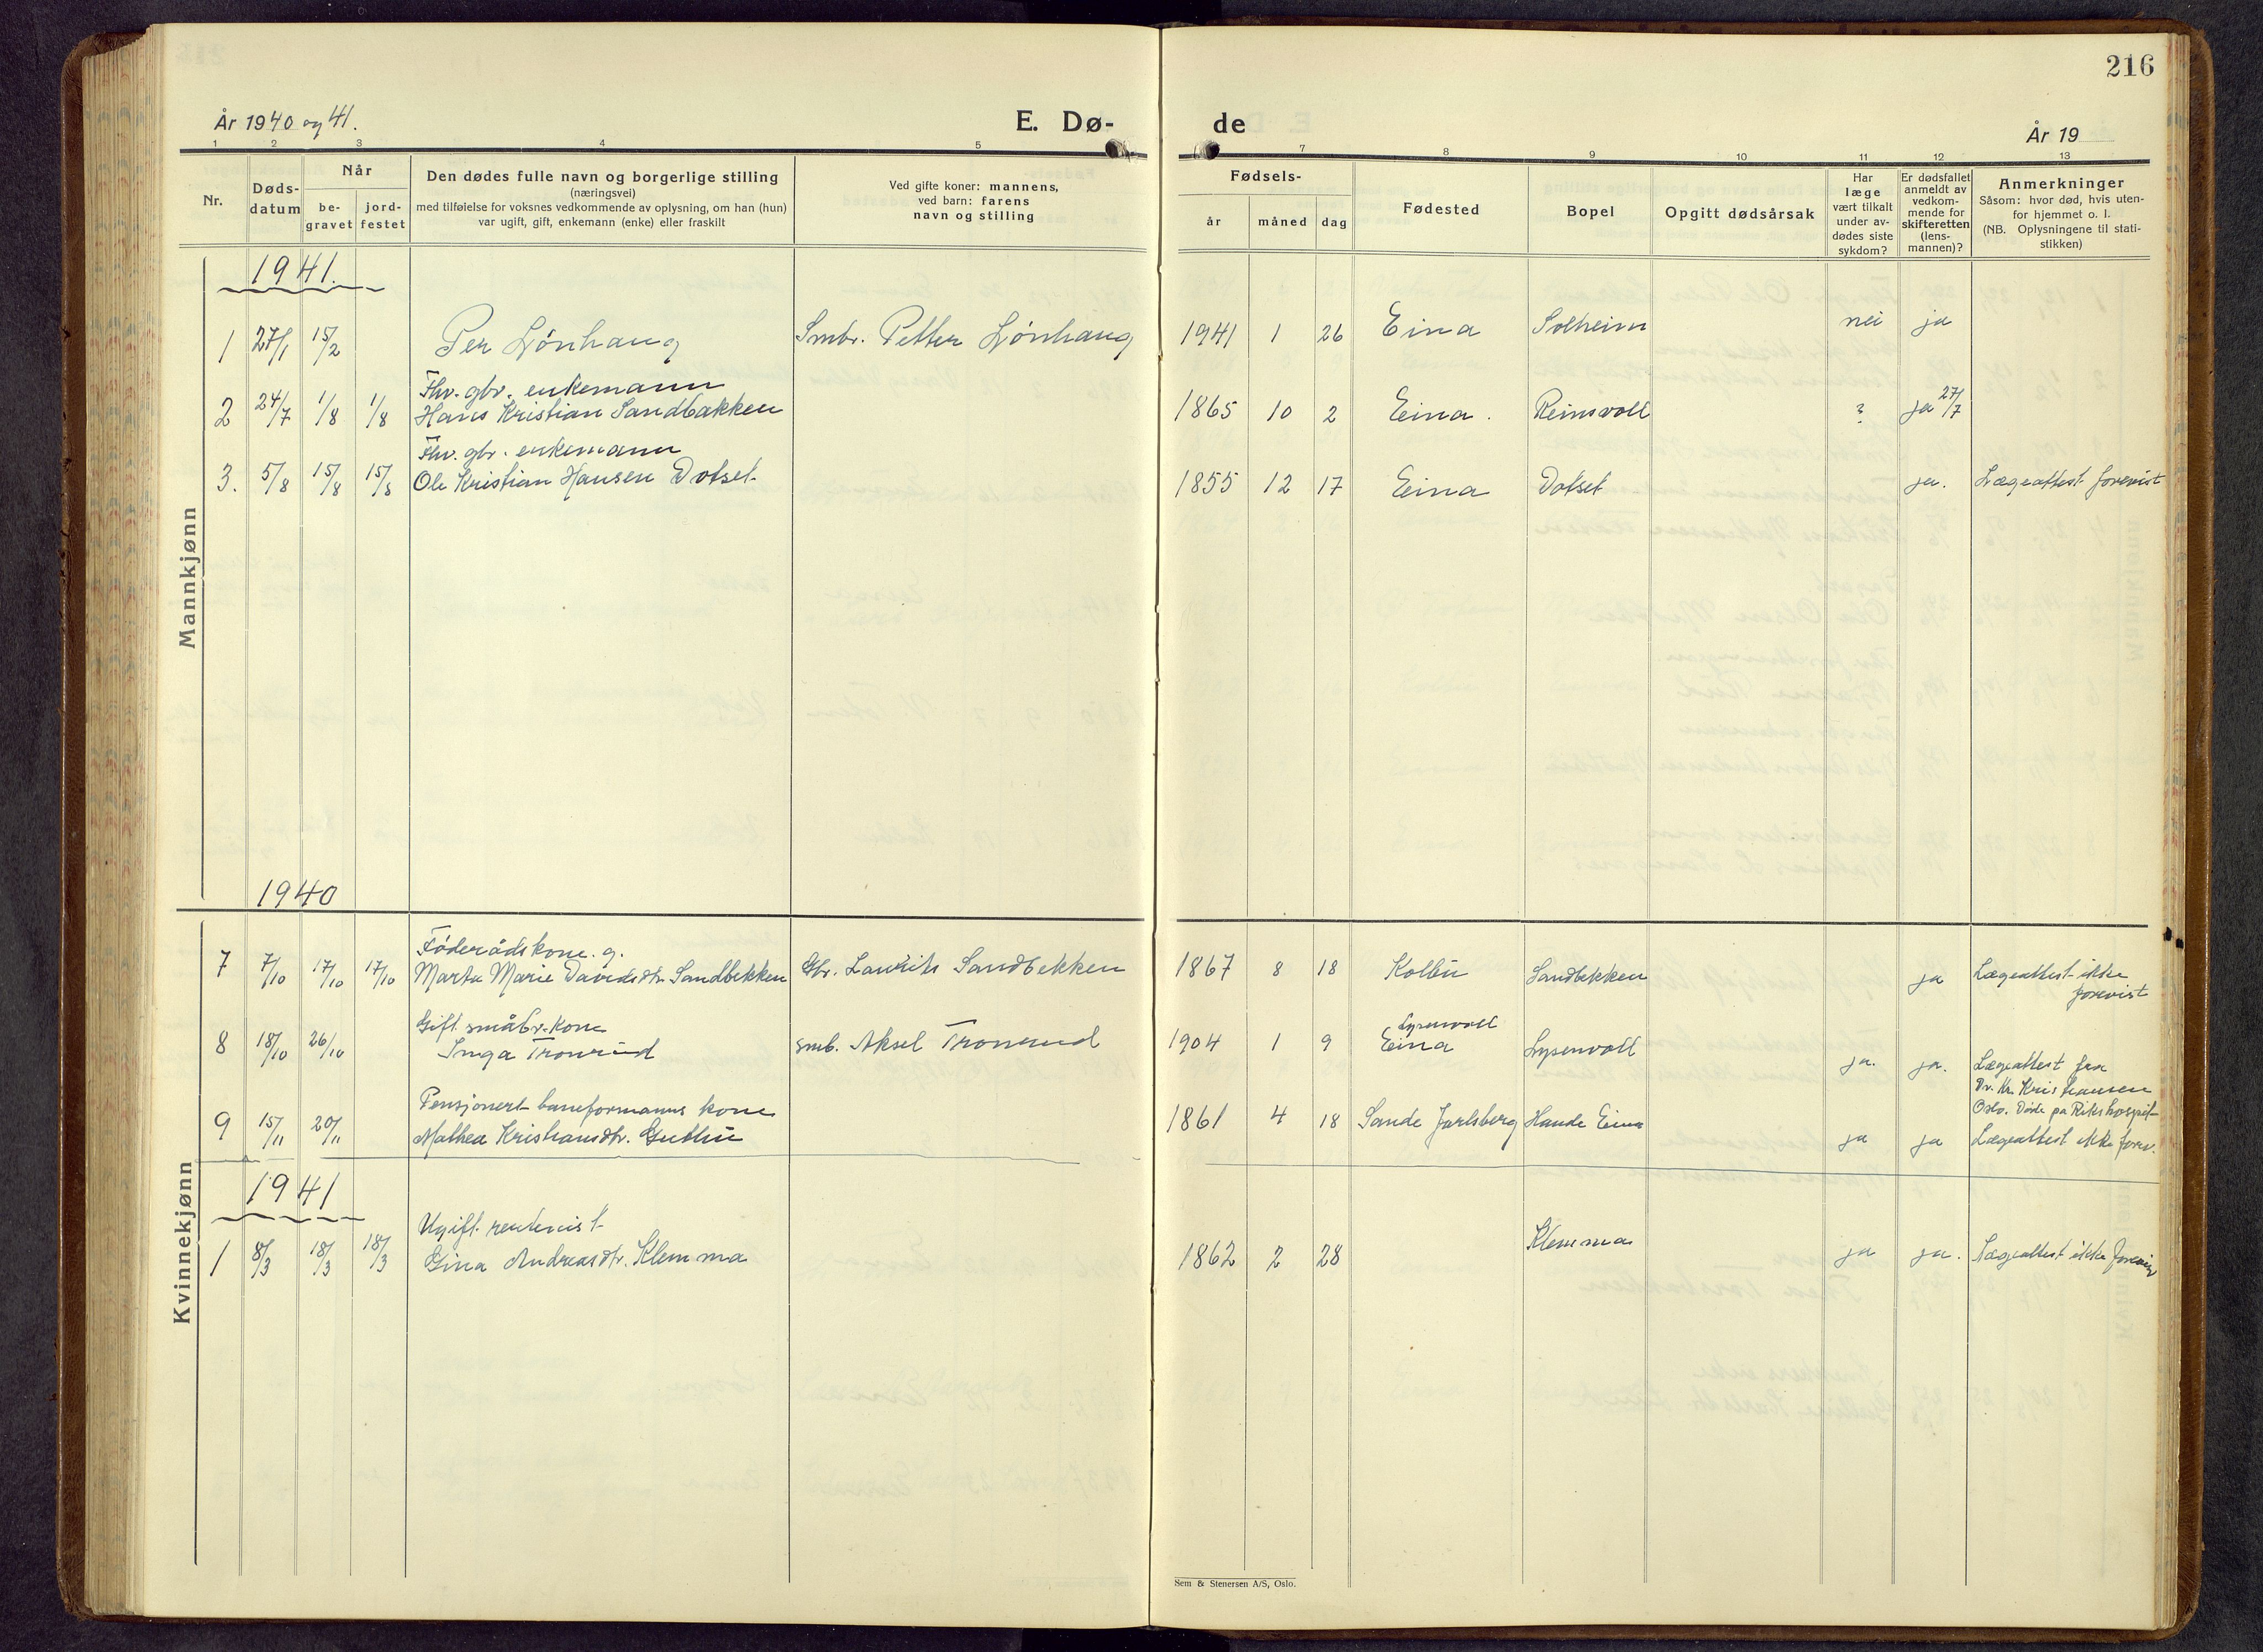 216
År 1940 og 41.
E. Dø-
de
År 19
1 2 3 4 5
7 8 9 10 11 12 13
Nr.
Døds-
datum
Når
be-
gravet
jord-
festet
Den dødes fulle navn og borgerlige stilling
(næringsvei)
med tilføielse for voksnes vedkommende av oplysning, om han (hun)
var ugift, gift, enkemann (enke) eller fraskilt
Ved gifte koner: mannens,
ved barn: farens
navn og stilling
Fødsels-
år måned dag
Fødested
Bopel
Opgitt dødsårsak
Har
læge
vært tilkalt
under av-
dødes siste
sykdom?
Er dødsfallet
anmeldt av
vedkom-
mende for
skifteretten
(lens-
mannen)?
Anmerkninger
Såsom: hvor død, hvis uten-
for hjemmet o. l.
(NB. Oplysningene til stati-
stikken)
Mannkjønn
1941.
1 27/1 15/2 Per Lönhaug Smbr. Petter Lönhaug 1941 1 26 Eina Solheim nei ja
Fhv. gbr. enkemann
2 24/7 1/8 1/8 Hans Kristian Sandbakken 1865 10 2 Eina. Reinsvoll ? ja 27/7
Fhv. gbr. enkemann
3. 5/8 15/8 15/8 Ole Kristian Hansen Dotset. 1855 12 17 Eina Dotset ja. Lægeattest forevist
1940
Kvinnekjønn
Föderådskone. g.
7 7/10 17/10 17/10 Marta Marie Davidsdtr. Sandbekken Gbr. Laurits Sandbekken 1867 8 18 Kolbu Sandbekken ja Lægeattest ikke
forevist
Gift småbr. kone
Lysenvoll
8 18/10 26/10 Inga Tronrud smb. Aksel Tronrud 1904 1 9 Eina Lysenvoll ja. ja. Lægeattest fra
Dr. Kr. Kristiansen
Oslo. Døde på Rikshospit-
Pensjonert baneformanns kone
9 15/11 20/11 Mathea Kristiansdtr. Guthu 1861 4 18 Sande Jarlsberg Haude Eina ja ja Lægeattest ikke forev.
1941
Ugift rentenist
1 8/3 18/3 18/3 Gina Andreasdtr. Klemma 1862 2 28 Klemma ja ja. Lægeattest ikke forevist
Sem & Stenersen A/S, Oslo.